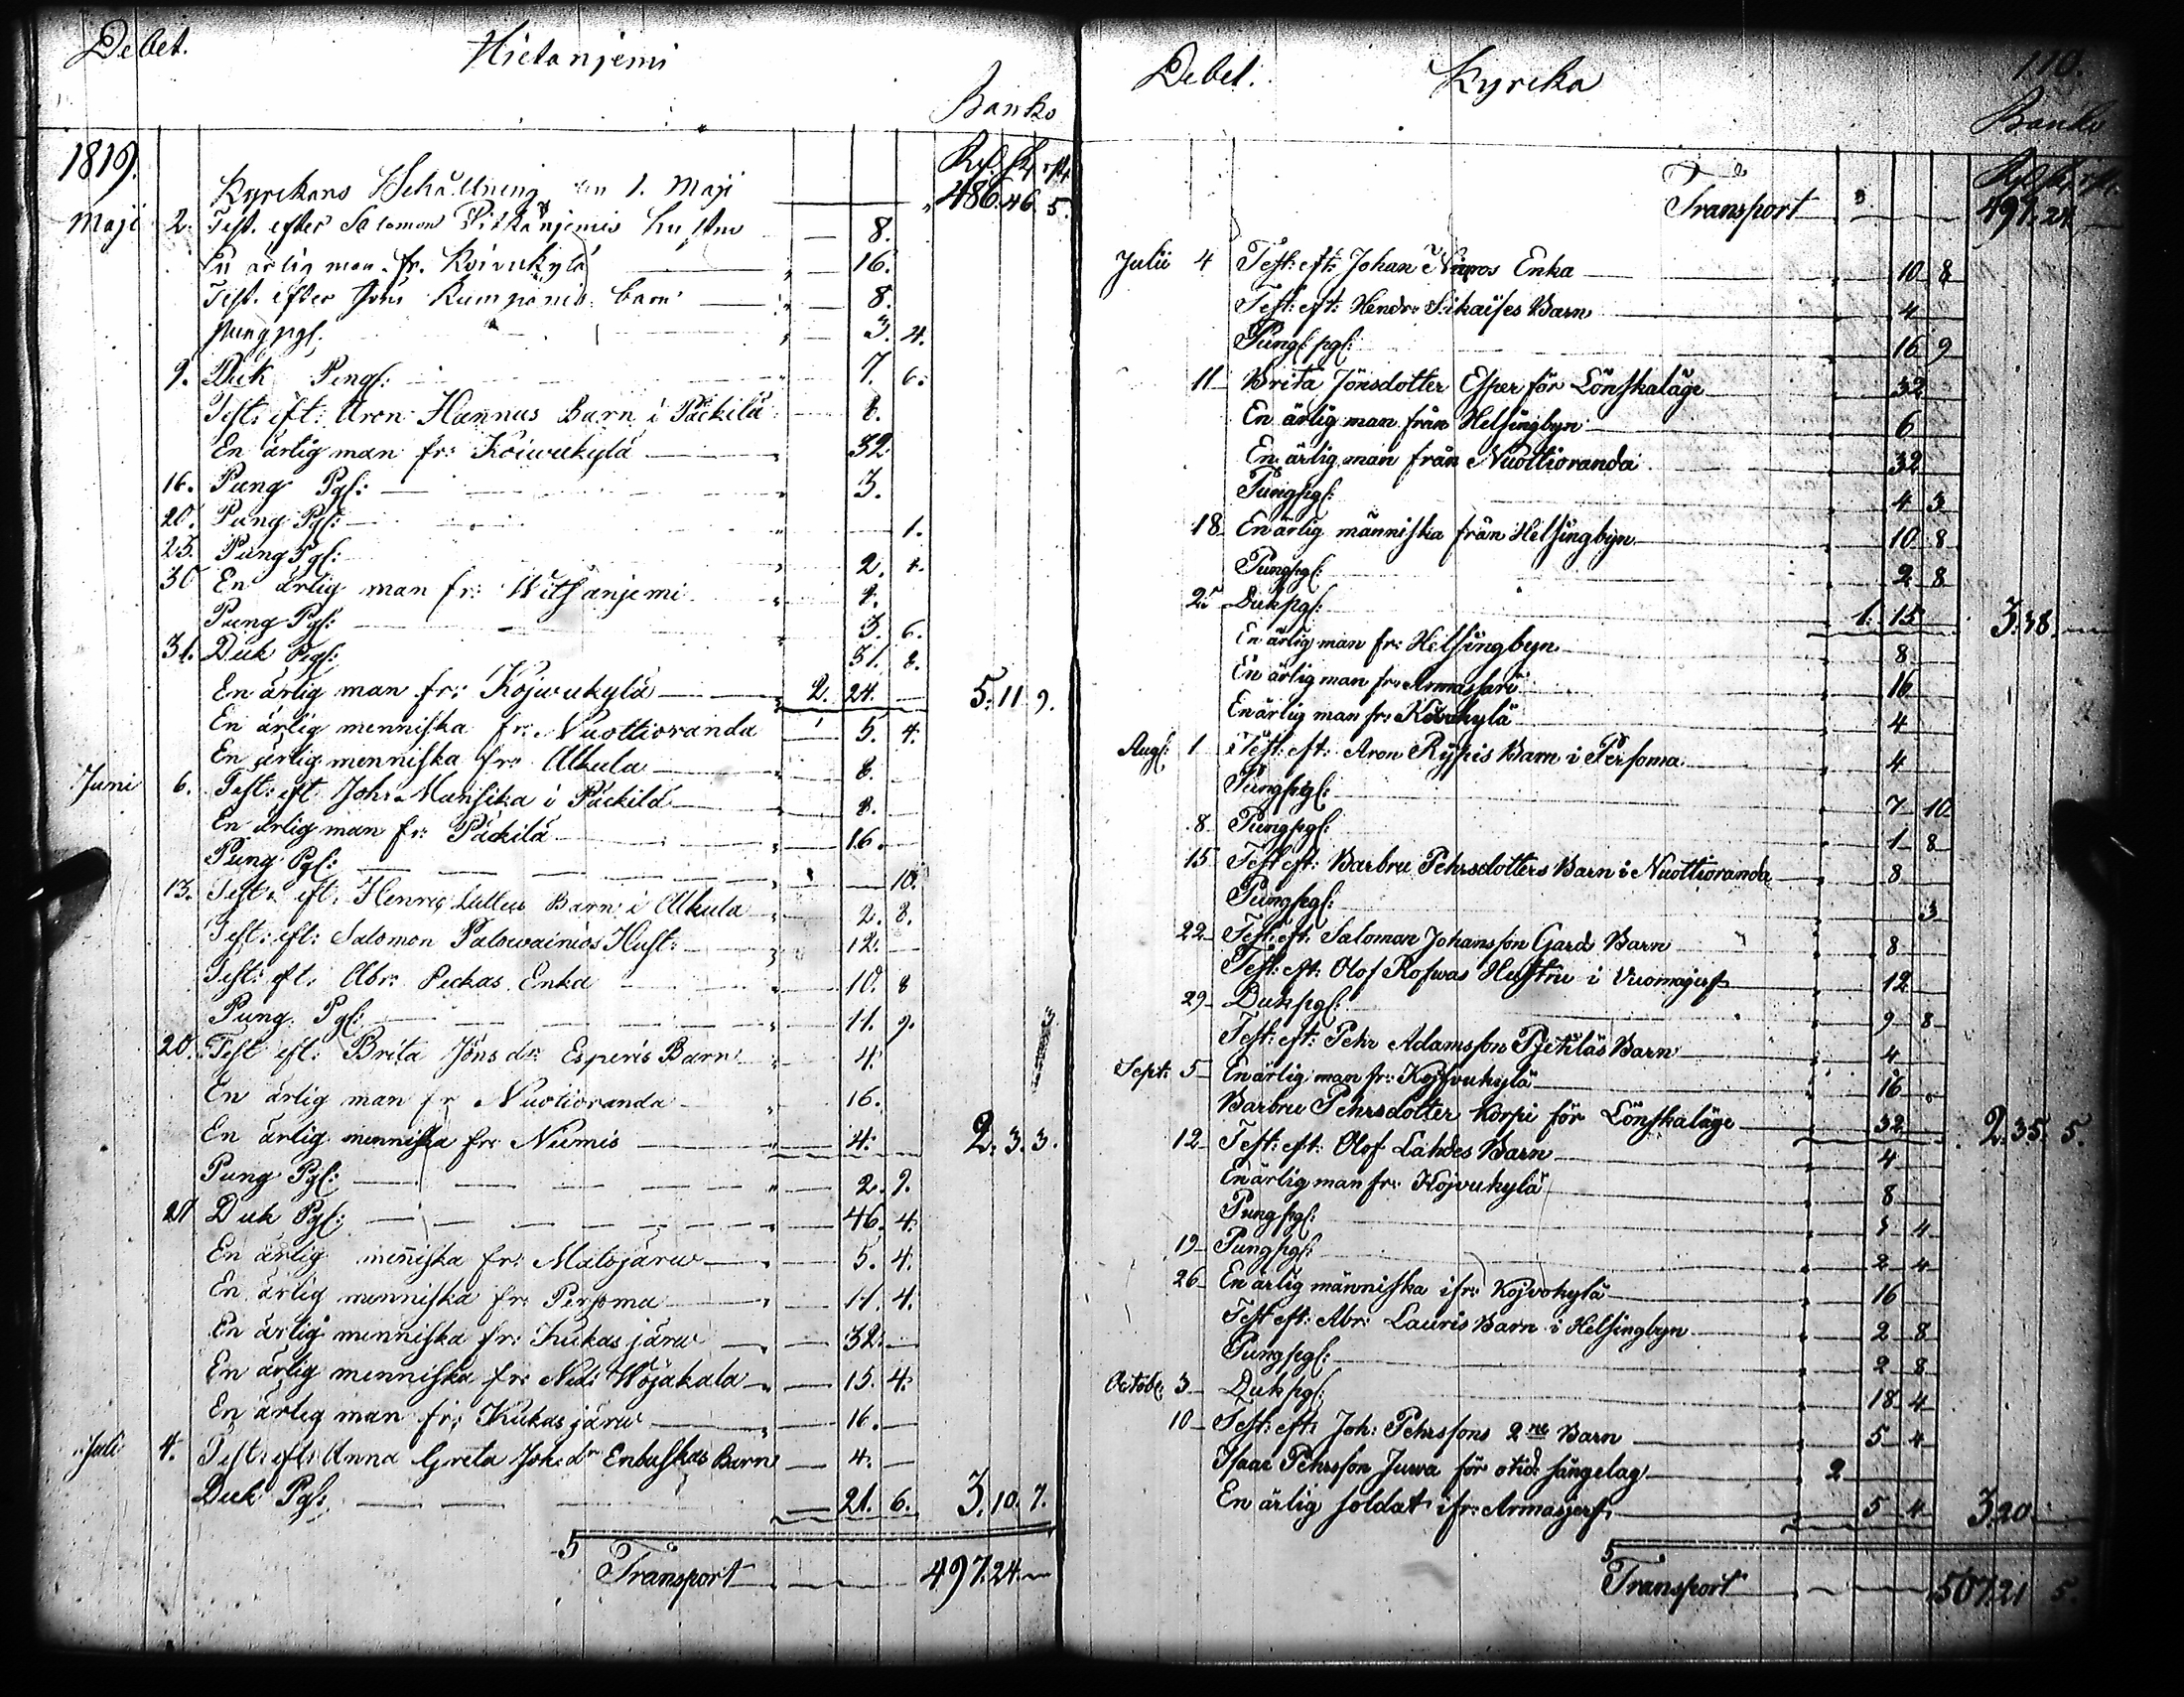 Debet. Hietanjemi
Banko
1819. Rd. sk. rst.
Kyrckans Behållning den 1. Maji 486. 46. 5.
Maji 2. Test. efter Salomon Pitkänjemis hustru 8.
En ärlig man. fr. Koivukylä 16.
Test. efter Jöns Kumpänis barn 8.
pung pgs. 3. 4.
9. Duk Pengs: 7. 6.
Test: eft: Aron Hannus Barn i Päckilä 8.
En ärlig man fr: Koiwukylä 32
16. Pung Pgs: 3.
20. Pung Pgs: 1.
23. Pung Pgs: 2. 4.
30 En ärlig man fr: Witsanjemi 4.
Pung Pgs: 3. 6.
31. Duk Pgs: 31. 8.
En ärlig man fr: Kojwukylä 2. 24. 5. 11 9.
En ärlig menniska fr: Nuottioranda 5. 4.
En ärlig menniska fr: Alkula 8.
Juni 6. Test: eft Joh: Mansika i Päckilä 8.
En ärlig man fr: Päckilä 16.
Pung Pgs: 10.
13. Test: eft. Henric Lutteus Barn i Alkula 2. 8.
Test: eft: Salomon Palowainios Hust: 12.
Test: eft. Abr: Peckas Enka 10. 8
Pung. Pgs: 11. 9.
20. Test eft: Brita Jöns dr: Esperis Barn 4.
En ärlig man fr Nuotioranda 16.
En ärlig menniska fr: Niemis 4. 2. 3. 3.
Pung Pgs: 2. 9.
27 Duk Pgs: 46. 4.
En ärlig meñiska fr: Matojärw 5. 4.
En ärlig menniska fr: Persoma 11. 4.
En ärlig menniska fr: Kukasjärw 32.
En ärlig menniska fr: Nedi Wojakala 15. 4.
En ärlig man fr: Kukasjärw 16.
Juli 4. Test: eft: Anna Greta Joh:dr Enbuskas Barn 4.
Duk Pgs: 21. 6. 3. 10. 7.
Transport 497. 24.
110.
Debet. Kyrcka
Banko
Rd sk rst.
Transport 497. 24
Julii 4 Test: eft: Johan Niwos Enka 10 8
Test: eft: Hendr: Sikaises Barn 4
Pung: pgs: 16 9
11 Brita Jönsdotter Esper för Lönskaläge 32
En ärlig man från Helsingbyn 6
En ärlig man från Nuottioranda 32
Pungpgs: 4 3
18 En ärlig människa från Helsingbyn 10 8
Pungpgs: 2 8
25 Dukpgs: 1. 15 3. 38
En ärlig man fr: Helsingbyn 8
En ärlig man fr: Armassari 16
En ärlig man fr: Koivukylä 4
Augs: 1 Test: eft: Aron Rypis Barn i Persoma 4
Pungpgs: 7 10
8 Pungpgs: 1 8
15 Test eft: Barbru Pehrsdotters Barn i Nuottioranda 8
Pungpgs: 3
22 Test: eft: Saloman Johansson Gards Barn 8
Test: eft: Olof Roswas Hustru i Vuomajerf 12
29 Dukpgs: 9 8
Test: eft: Pehr Adamsson Pjetiläs Barn 4
Sept: 5 En ärlig man fr: Kojfvukylä 16
Barbru Pehrsdotter Korpi för Lönskaläge 32 2. 35. 5.
12 Test: eft: Olof Lahdes Barn 4
En ärlig man fr: Kojvukylä 8
Pungpgs: 5 4
19 Pungpgs: 2 4
26 En ärlig människa ifr: Kojvokylä 16
Test eft: Abr: Lauris Barn i Helsingbyn 2 8
Pungpgs: 2 8
Octobr: 3 Dukpgs: 18 4
10 Test: eft: Joh: Pehrssons 2ne Barn 5 4
Isaac Pehrsson Juwa för otid: sängelag 2
En ärlig soldat ifr: Armasjerf 5 4 3. 20.
Transport 507. 21 5.